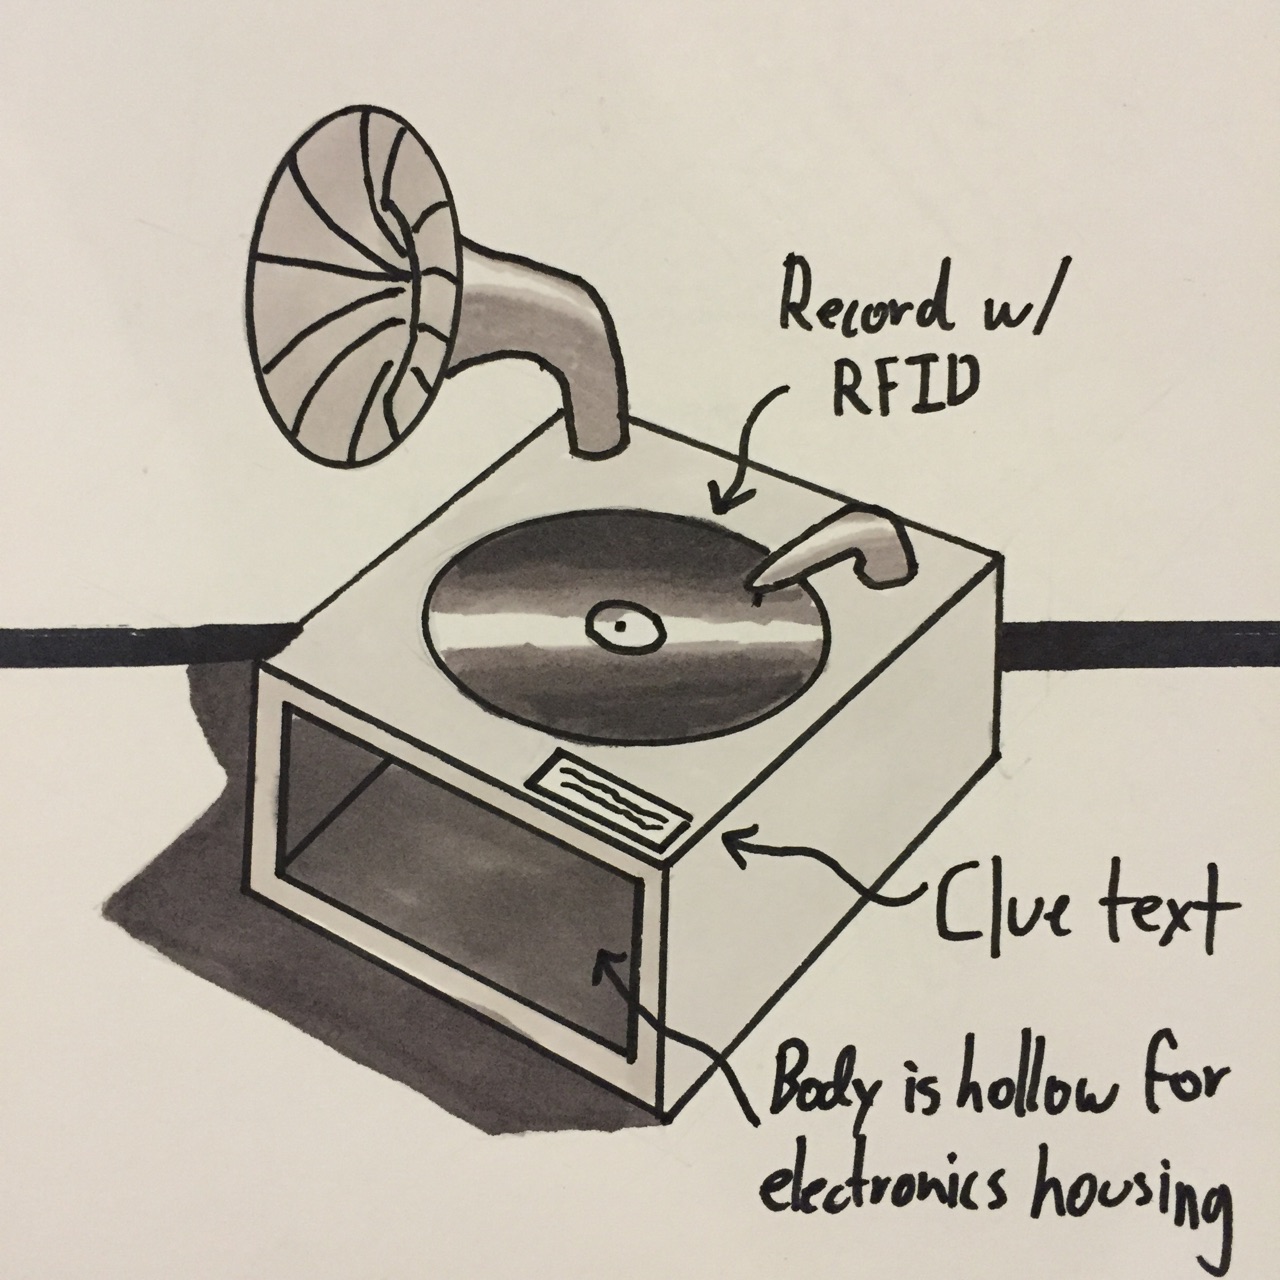 Record w/
RFID
Clue text
Body is hollow for
electronics housing